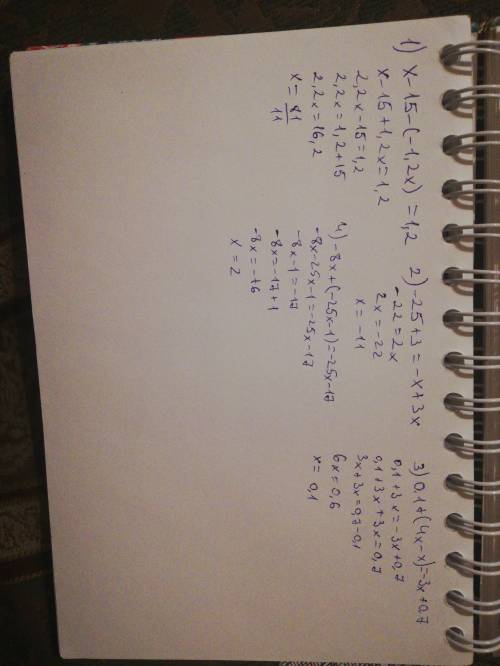 1) x-15-(-1,2x)=1,2
x-15+1,2x=1,2
2,2x-15=1,2
2,2x=1,2+15
2,2x=16,2
x=81/11
2) -25+3=-x+3x
-22=2x
2x=-22
x=-11
3) 0,1+(4x-x)=-3x+0,7
0,1+3x=-3x+0,7
0,1+3x+3x=0,7
3x+3x=0,7-0,1
6x=0,6
x=0,1
4) -8x+(-25x-1)=-25x-17
-8x-25x-1=-25x-17
-8x-1=-17
-8x=-17+1
-8x=-16
x=2